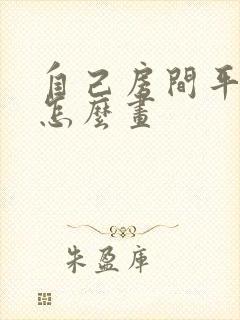 自己房間平
怎麼畫
朱盈庫